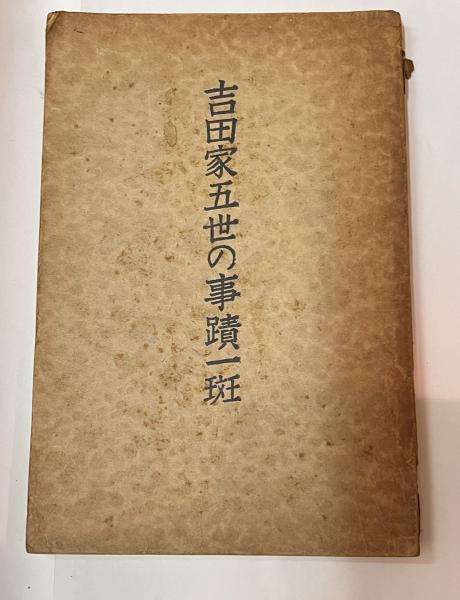 吉田家五世の事蹟一斑